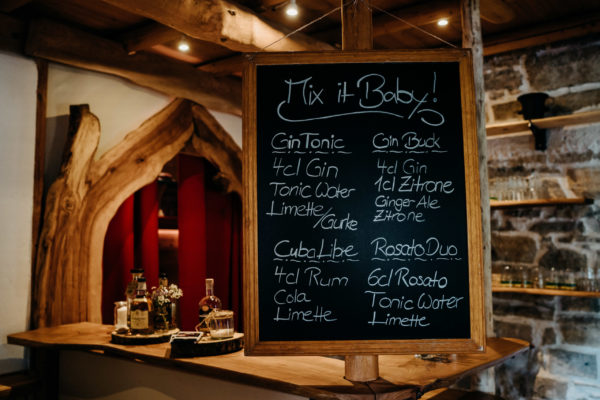 Mix it Baby!
Gin Tonic
4cl Gin
Tonic Water
Limette/Gurke
Gin Buck
4cl Gin
1cl Zitrone
Ginger-Ale
Zitrone
Cuba Libre
4cl Rum
Cola
Limette
Rosato Duo
6cl Rosato
Tonic Water
Limette